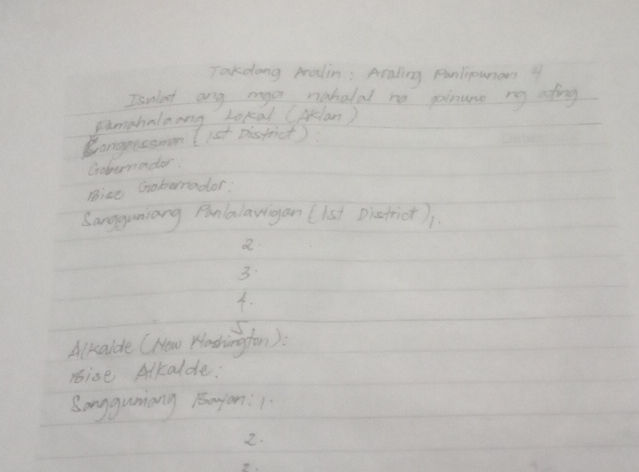 Takdang Aralin: Araling Panlipunan 4
Isulat ang mga nahalal na pinuno ng ating
Pamahalaang Lokal (Aklan)
Congressman (1st District):
Gobernador:
Bise Gobernador:
Sangguniang Panlalawigan (1st District) 1.
2.
3.
4.
5
Alkalde (New Washington):
Bise Alkalde:
Sangguniang Bayan: 1.
2.
3.